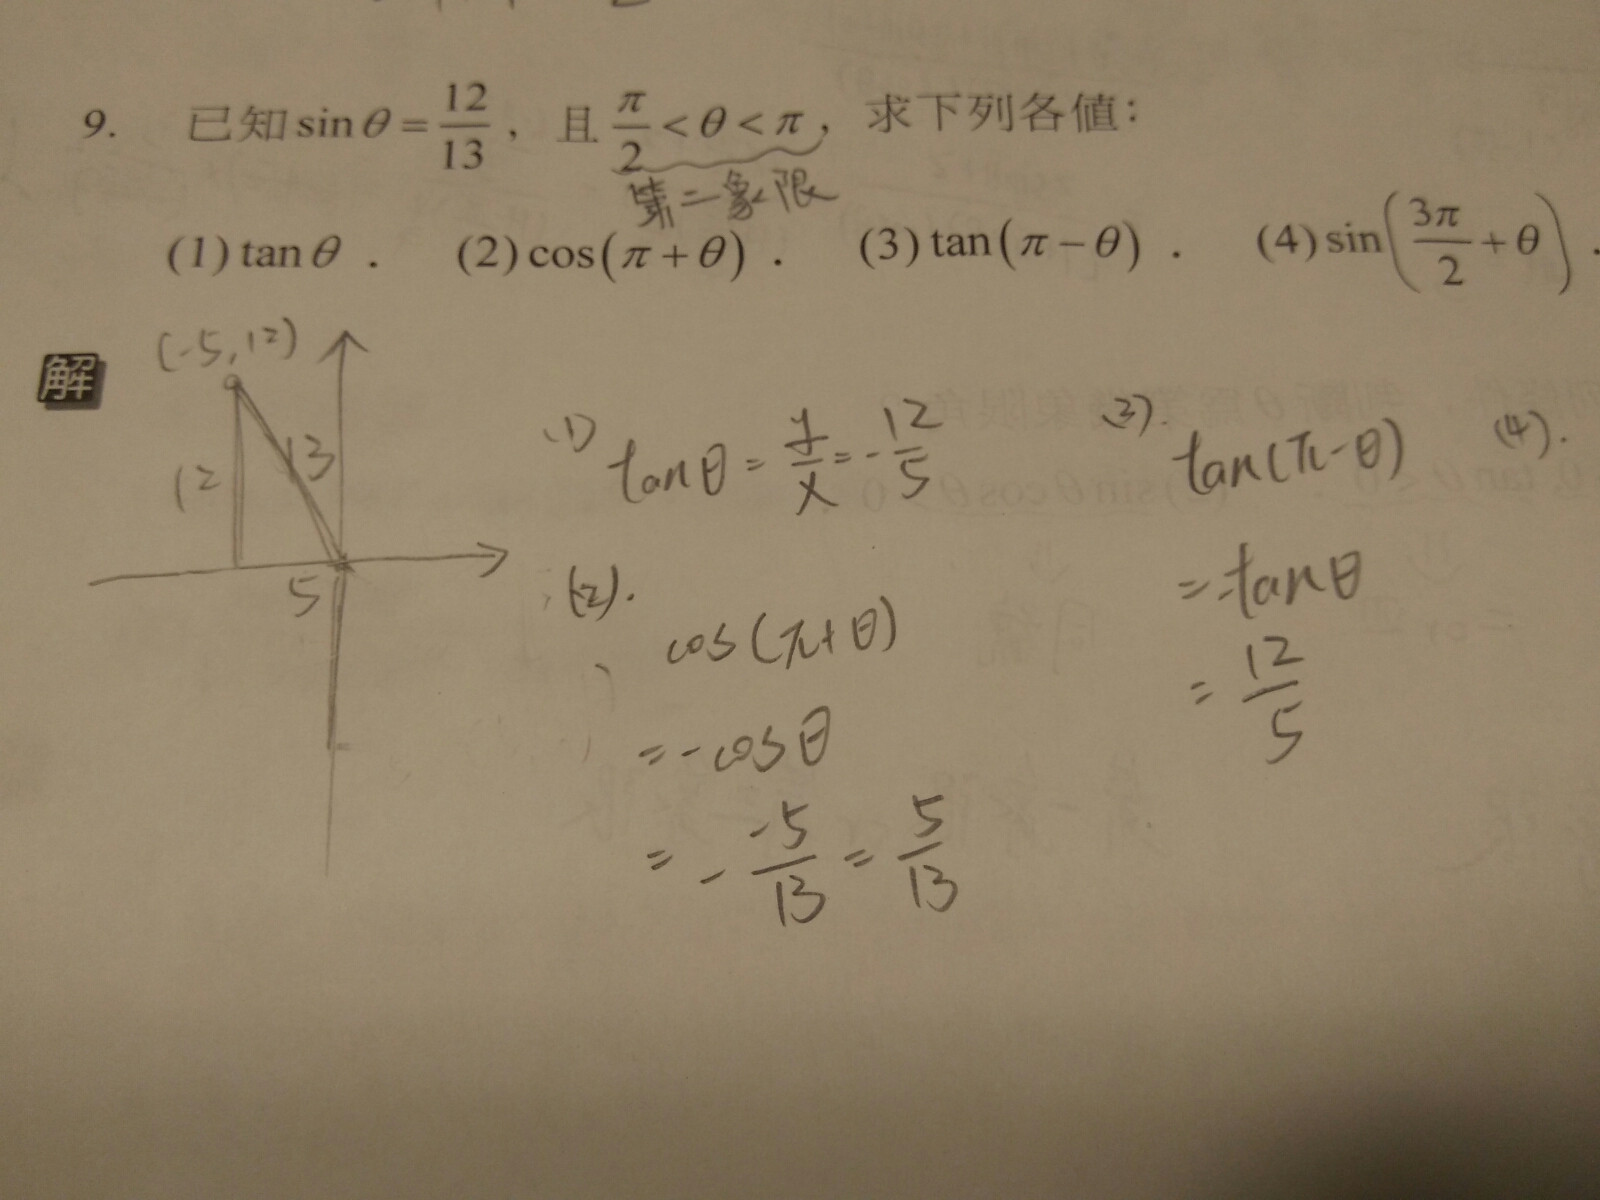 9. 已知 sinθ = 12/13, 且 π/2 < θ < π, 求下列各值:
第二象限
(1) tanθ . (2) cos(π+θ) . (3) tan(π−θ) . (4) sin(3π/2 + θ) .
解
(-5,12)
12
13
5
(1) tanθ = y/x = -12/5
(2). cos(π+θ)
= -cosθ
= - -5/13 = 5/13
(3). tan(π-θ)
= -tanθ
= 12/5
(4).